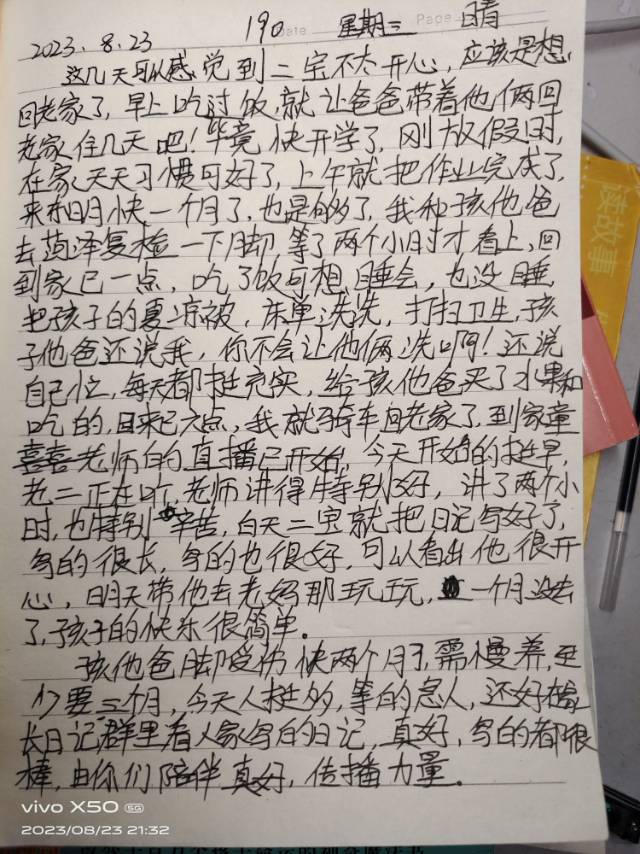 2023.8.23 190 Date 星期三 Page 晴
这几天可以感觉到二宝不太开心,应该是想
回老家了,早上吃过饭,就让爸爸带着他俩回
老家住几天吧!毕竟快开学了,刚放假时,
在家天天习惯可好了,上午就把作业完成了,
来和月快一个月了,也是够了,我和孩他爸
去菏泽复检一下脚,等了两个小时才看上,回
到家已一点,吃了饭可想睡会,也没睡
把孩子的夏凉被,床单洗洗,打扫卫生,孩
子他爸还说我,你不会让他俩洗啊!还说
自己忙,每天都挺充实,给孩他爸买了水果和
吃的,回来已六点,我就骑车回老家了,到家董
喜喜老师的直播已开始,今天开始的挺早,
老二正在听,老师讲得特别好,讲了两个小
时,也特别辛苦,白天二宝就把日记写好了,
写的很长,写的也很好,可以看出他很开
心,明天带他去老妈那玩玩,一个月没去
了,孩子的快乐很简单。
孩他爸脚受伤快两个月了,需慢养,至
少要三个月,今天人挺多,等的急人,还好在家
长日记群里看人家写的日记,真好,写的都很
棒,由你们陪伴真好,传播力量。
vivo X50 5G
2023/08/23 21:32
读故事